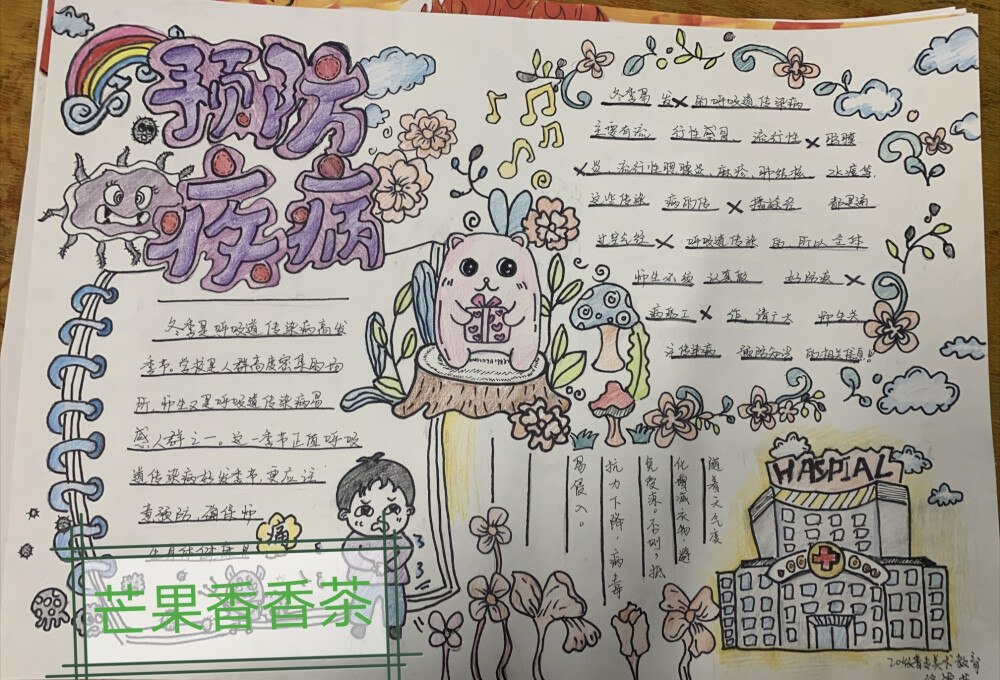 预防
疾病
冬季是呼吸道传染病高发
季节。学校是人群高度密集的场
所,师生又是呼吸道传染病易
感人群之一。这一季节正值呼吸
道传染病好发季节,更应注
意预防,确保师
痛
芒果香香茶
冬季易 发×的呼吸道传染病
主要有流 行性感冒 流行性×脑膜
×炎 流行性腮腺炎、麻疹、肺结核 水痘等,
这些传染 病的传×播途径 都是通
过空气经×呼吸道传染 的,所以全体
师生必须 认真做 好防疫×
病、×作,请广大 师生关
注传染病 预防知识 的相关信息!
随着天气变
化增减衣物,避
免受凉。否则,抵
抗力下降,病毒
易侵入。
HASPIAL